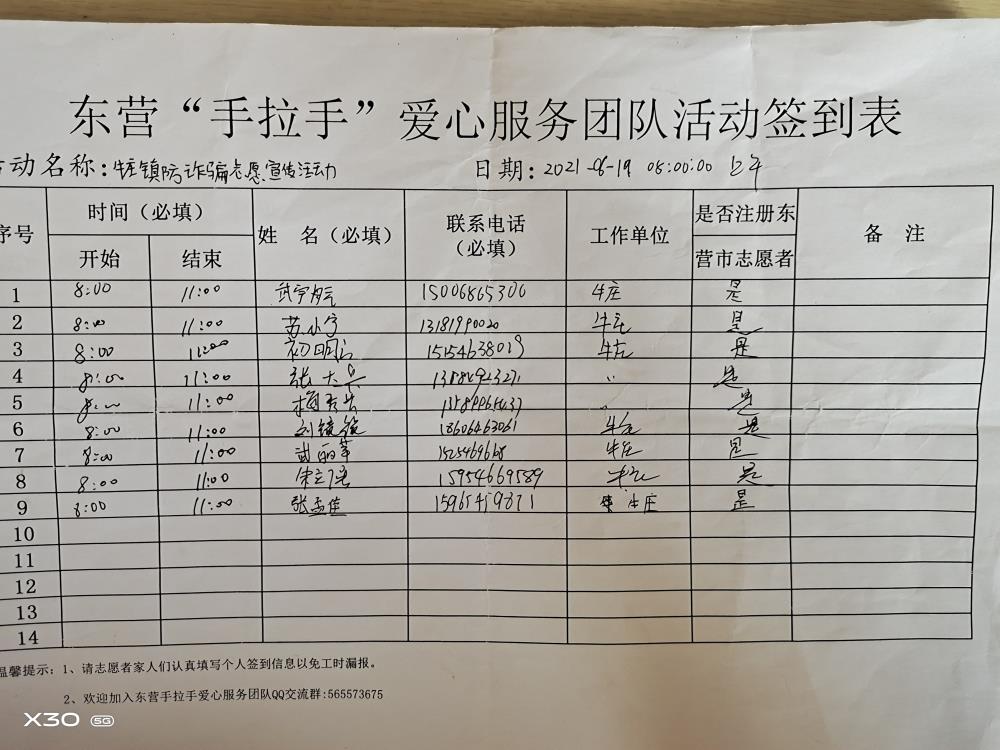 东营“手拉手”爱心服务团队活动签到表
动名称：牛庄镇防诈骗志愿宣传活动 日期：2021-8-19 08:00:00 上午
序号 时间（必填） 姓 名（必填） 联系电话（必填） 工作单位 是否注册东营市志愿者 备 注
开始 结束
1 8:00 11:00 15006865306 牛庄 是
2 8:00 11:00 苏小宁 13181990020 牛庄 是
3 8:00 11:00 初明 15154638019 牛庄 是
4 8:00 11:00 张大 〃 是
5 8:00 11:00 是
6 8:00 11:00 18606463061 牛庄 是
7 8:00 11:00 武丽苹 牛庄 是
8 8:00 11:00 宋立 15954669589 牛庄 是
9 8:00 11:00 张孟佳 牛庄 是
10
11
12
13
14
温馨提示：1、请志愿者家人们认真填写个人签到信息以免工时漏报。
2、欢迎加入东营手拉手爱心服务团队QQ交流群:565573675
X30 5G